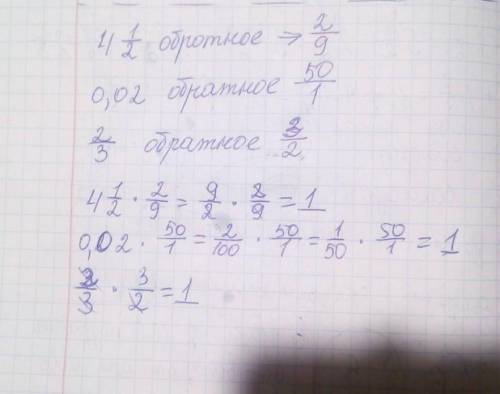 4 1/2 обротное → 2/9
0,02 обратное 50/1
2/3 обратное 3/2
4 1/2 · 2/9 = 9/2 · 2/9 = 1
0,02 · 50/1 = 2/100 · 50/1 = 1/50 · 50/1 = 1
2/3 · 3/2 = 1